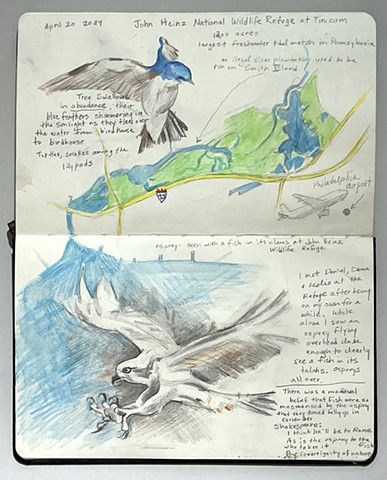 April 20 2024
John Heinz National Wildlife Refuge at Tinicum
1200 acres
largest freshwater tidal marsh in Pennsylvania
an illegal slave plantation used to be
run on Smith Island
Tree Swallows
in abundance, their
blue feathers shimmering in
the sunlight as they flew over
the water from birdhouse
to birdhouse
Turtles, snakes among the
lilypads
Philadelphia
airport
osprey seen with a fish in its claws at John Heinz
Wildlife Refuge
I met Daniel,
& Leslie at the
Refuge after being
on my own for a
while. While
alone I saw an
osprey flying
overhead close
enough to clearly
see a fish in its
talons. Ospreys
all over.
There was a medieval
belief that fish were so
mesmerised by the osprey
that they turned belly up in
surrender
Shakespeare:
I think he'll be to Rome
As is the osprey to the
fish
who takes it
By sovereignty of nature